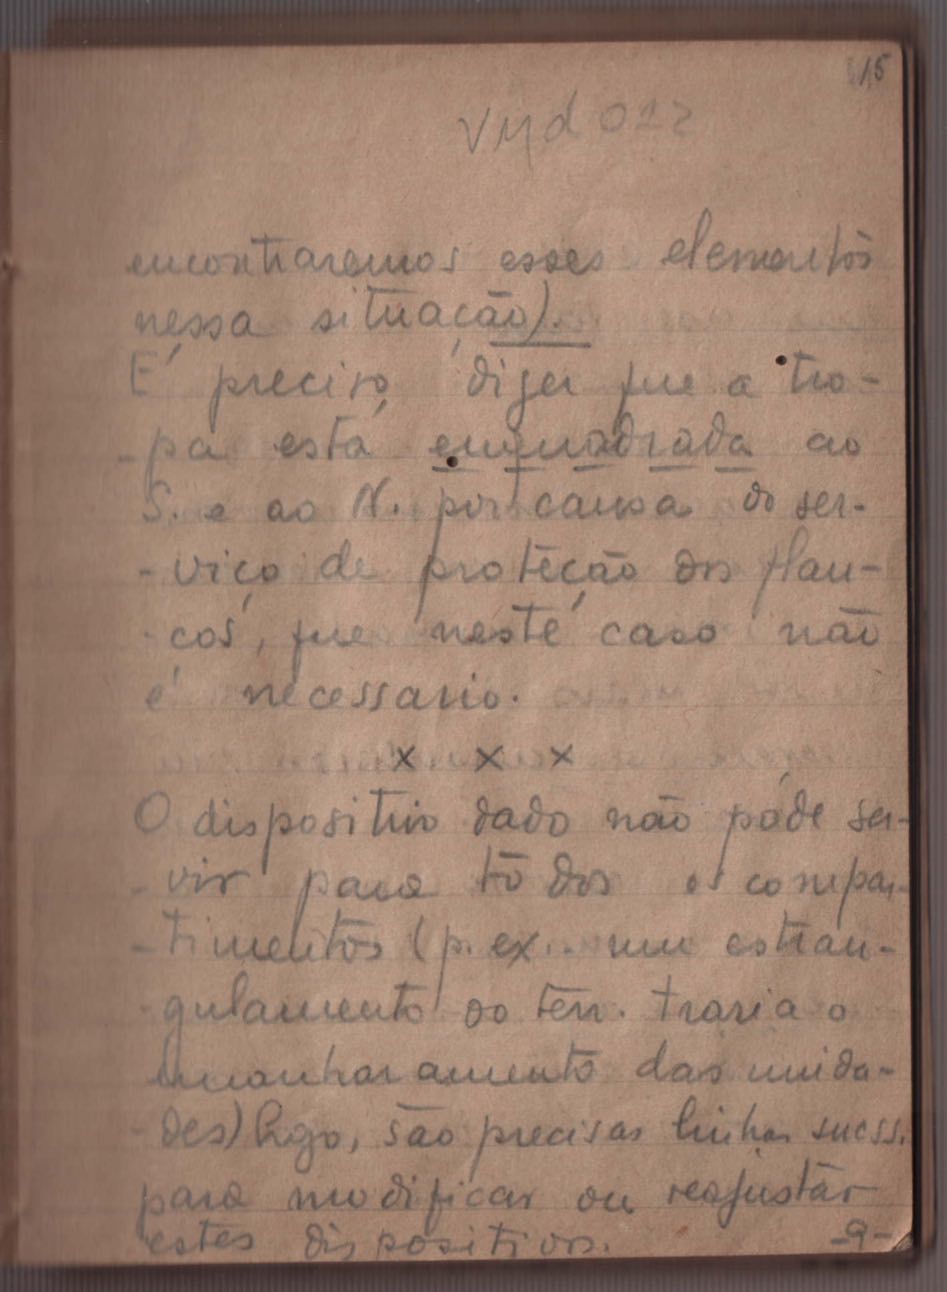 15
VMd 012
encontraremos esses elementos
nessa situação).
É preciso dizer que a tro-
-pa está enquadrada ao
S. e ao N. por causa do ser-
-viço de proteção dos flan-
-cos, que neste caso não
é necessario.
x x x
O dispositivo dado não póde ser-
-vir para tôdos os compar-
-timentos (p. ex.. um estran-
-gulamento do terr. traria o
das unida-
-des) logo, são precisas linhas sucss.
para modificar ou reajustar
estes dispositivos.
-9-